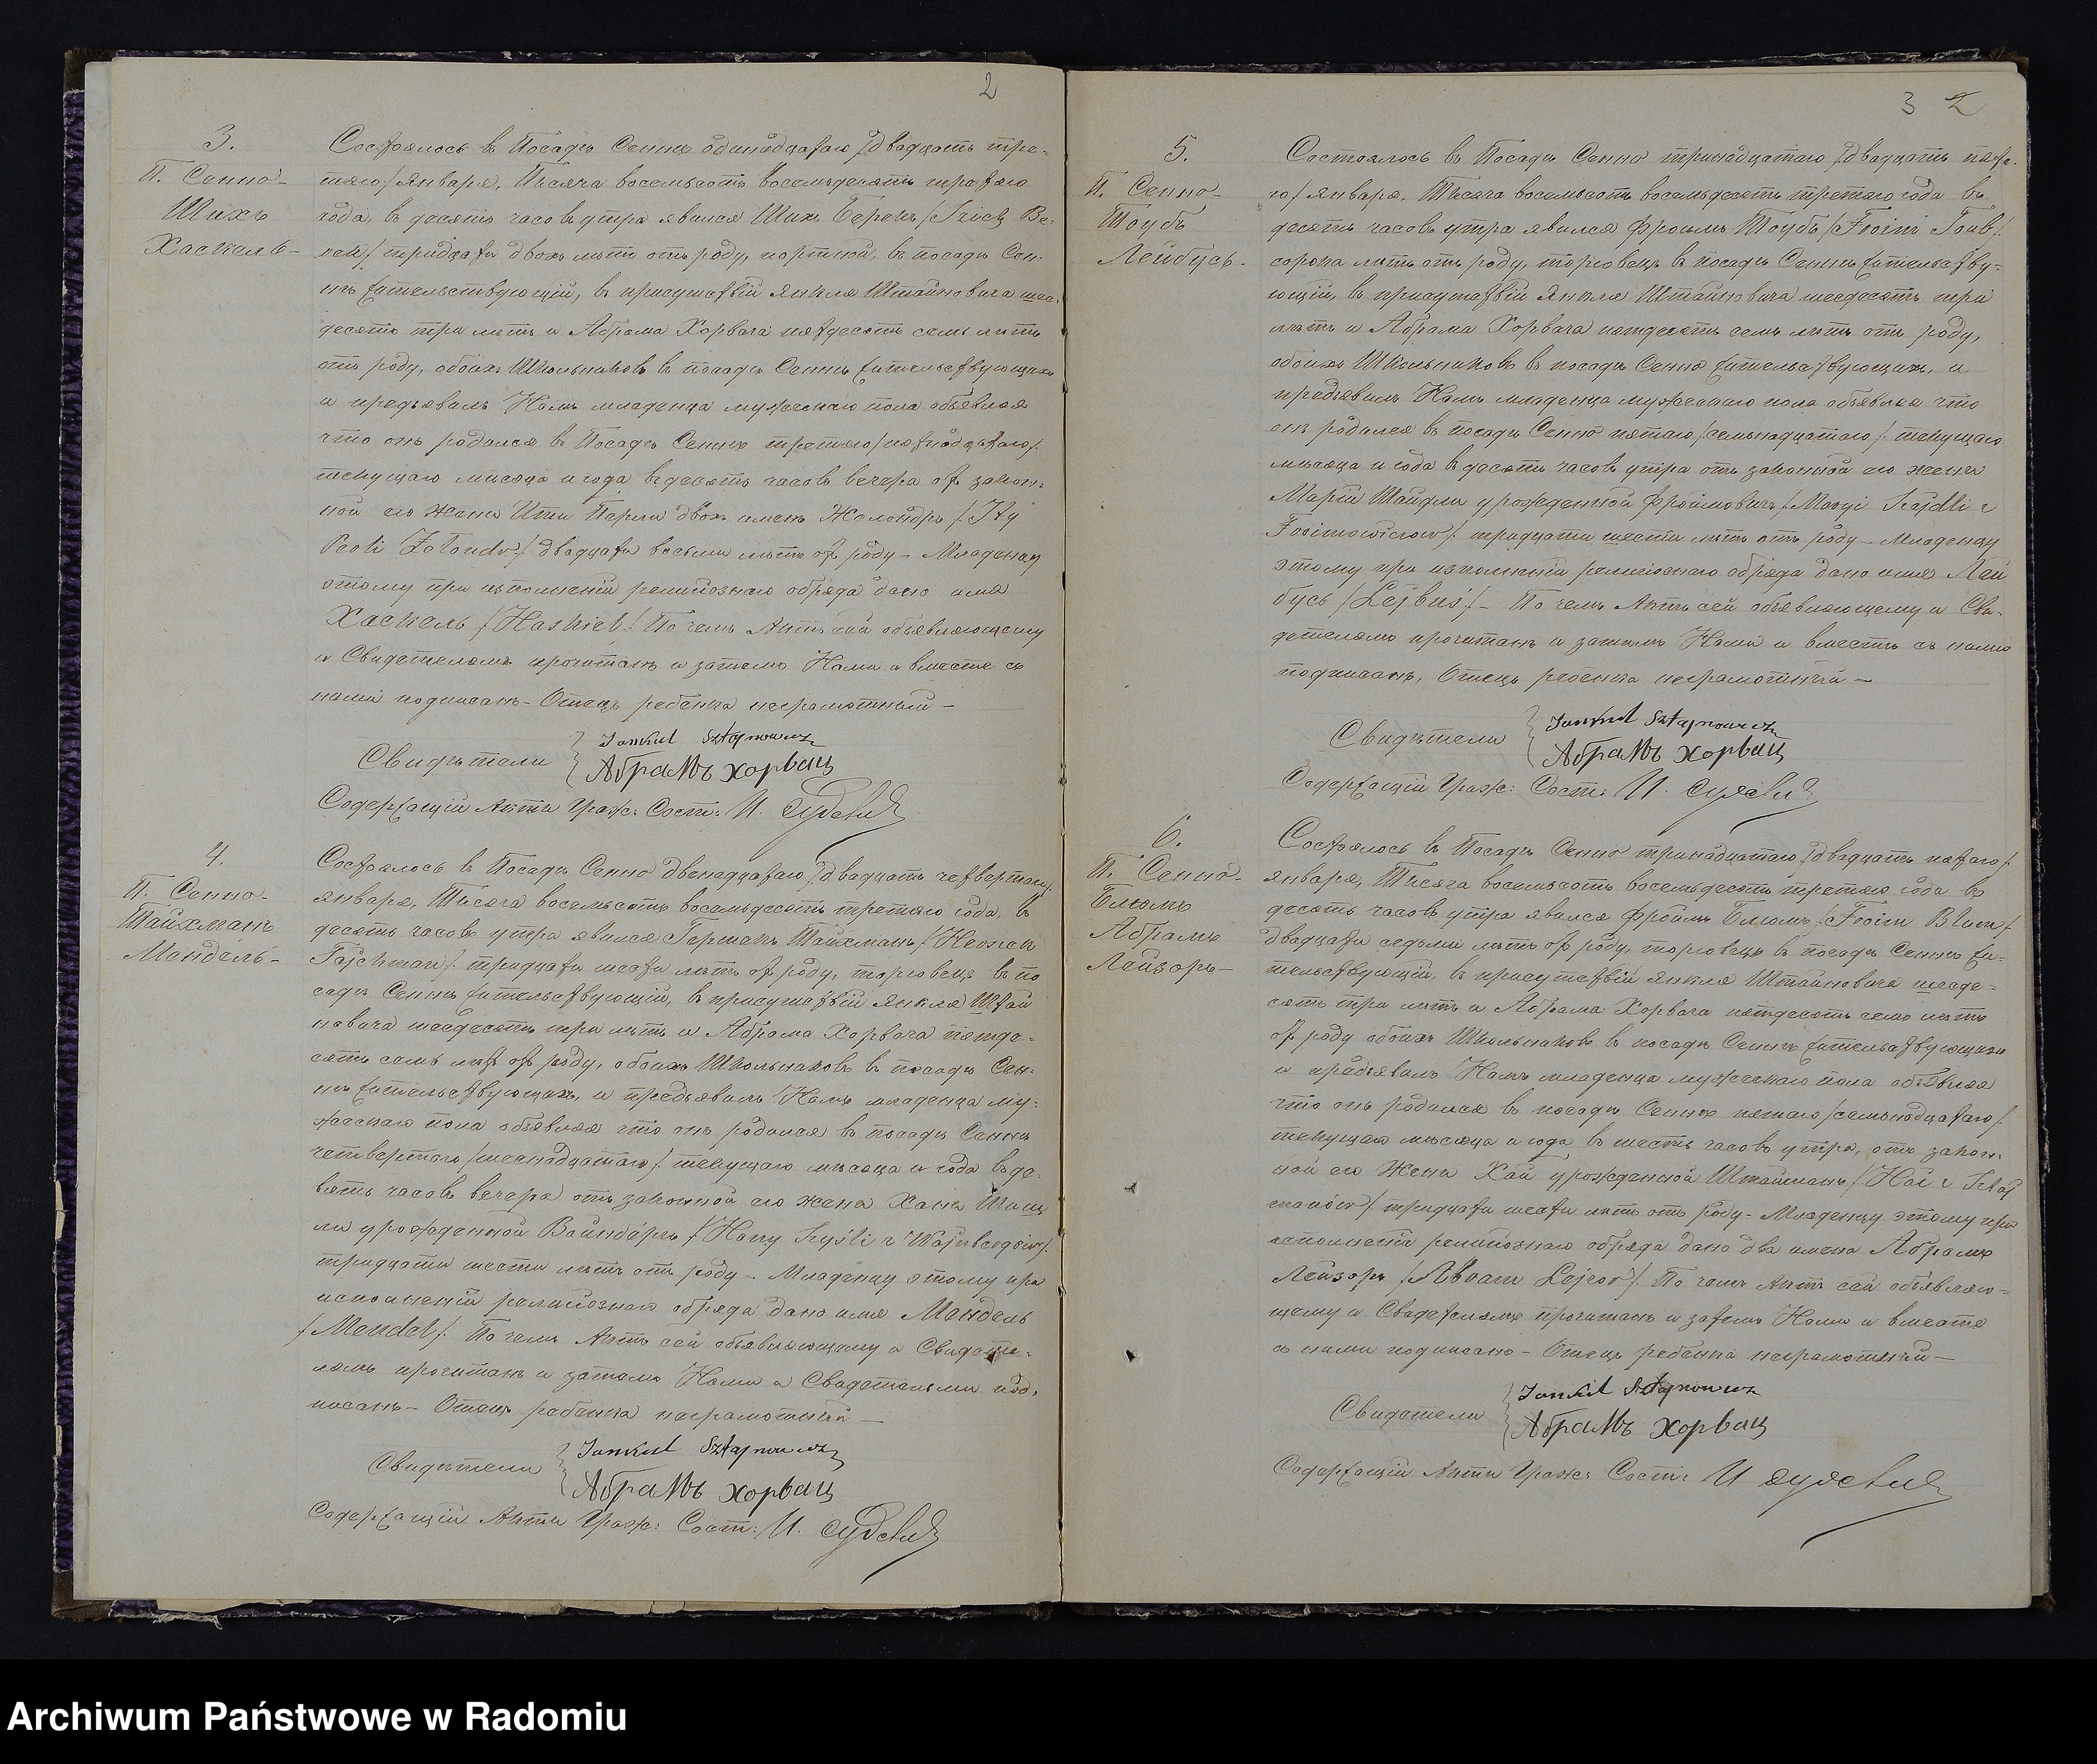 2
3.
П. Сенно-
Шихъ
Хаскель-
Состоялось въ Посадѣ Сеннѣ одинадцатаго /двадцать тре-
тяго/ Января, Тысяча восемьсотъ восемьдесятъ третяго
года, въ десять часовъ утра явился Шихъ Берекъ /Szich Be-
рек/ тридцати двохъ лѣтъ отъ роду, портной, въ посадѣ Сен-
нѣ жительствующій, въ присутствіи Янкля Штайновича шес-
десятъ три лѣтъ и Абрама Хорвача пятдесятъ семь лѣтъ
отъ роду, обоихъ Школьниковъ въ посадѣ Сеннѣ жительствующихъ
и предъявилъ Намъ младенца мужескаго пола объявляя
что онъ родился въ Посадѣ Сеннѣ третяго /пятнадцатаго/
текущаго мѣсяца и года въ десять часовъ вечера отъ закон-
ной его жены Иты Перли двохъ именъ Желондръ /Ity
Perli Żelondr/ двадцати восьми лѣтъ отъ роду - Младенцу
этому при исполненіи религіознаго обряда дано имя
Хаскель /Haskiel/ По чемъ Актъ сей объявляющему
и Свидетелямъ прочитанъ и затемъ Нами и вместе съ
ними подписанъ - Отецъ ребенка неграмотный -
Свидѣтели
Jankiel Sztajnowicz
Абрамъ Хорвац
Содержащій Акты Граж: Сост: И.
4.
П. Сенно-
Тайхманъ
Мендель-
Состоялось въ Посадѣ Сенно двенадцатаго /двадцать четвертаго/
января, Тысяча восемьсотъ восемьдесятъ третяго года, въ
десять часовъ утра явился Гершекъ Тайхманъ /Herszek
Tajchman/ тридцати шести лѣтъ отъ роду, торговецъ въ по
садѣ Сеннѣ жительствующій, въ присутствіи Янкля Штай
новича шесдесятъ три лѣтъ и Абрама Хорвача пятде-
сятъ семь лѣтъ отъ роду, обоихъ Школьниковъ въ посадѣ Сен-
нѣ жительствующихъ, и предъявилъ Намъ младенца му-
жескаго пола объявляя что онъ родился въ посадѣ Сеннѣ
четвертаго /шеснадцатаго/ текущаго мѣсяца и года въ де-
вять часовъ вечера отъ законной его жены Ханы Шищ
ли урожденной Вайнбергъ /Hany Szyśli z Wajnbergów/
тридцати шести лѣтъ отъ роду - Младенцу этому при
исполненіи религіознаго обряда дано имя Мендель
/Mendel/. По чемъ Актъ сей объявляющему и Свидете-
лямъ прочитанъ и затемъ Нами и Свидетельми под-
писанъ - Отецъ ребенка неграмотный -
Свидѣтели
Jankiel Sztajnowicz
Абрамъ Хорвац
Содержащій Акты Граж: Сост: И.
3 2
5.
П. Сенно-
Тоубъ
Лейбусь-
Состоялось въ Посадѣ Сенно тринадцатаго /двадцать пята-
го/ января, Тысяча восемьсотъ восемьдесятъ третяго года въ
десять часовъ утра явился Фроимъ Тоубъ /Froim Toub/
сорока лѣтъ отъ роду, торговецъ въ посадѣ Сеннѣ жительству-
ющій, въ присутствіи Янкля Штайновича шесдесятъ три
лѣтъ и Абрама Хорвача пятдесятъ семь лѣтъ отъ роду,
обоихъ Школьниковъ въ посадѣ Сенно жительствующихъ, и
предъявилъ Намъ младенца мужескаго пола объявляя что
онъ родился въ посадѣ Сенно пятаго /семьнадцатаго/ текущаго
мѣсяца и года въ десять часовъ утра отъ законной его жены
Маріи Шайдли урожденной Фроимовичъ /Maryi Szajdli z
Froimowiczow/ тридцати шести лѣтъ отъ роду - Младенцу
этому при исполненіи религіознаго обряда дано имя Лей
бусь /Lejbuś/ - По чемъ Актъ сей объявляющему и Сви-
детелямъ прочитанъ и затемъ Нами и вместѣ съ ними
подписанъ, Отецъ ребенка неграмотный -
Свидѣтели
Jankiel Sztajnowicz
Абрамъ Хорвац
Содержащій Граж: Сост: И.
6.
П. Сенно-
Блюмъ
Абрамъ
Лейзоръ-
Состоялось въ Посадѣ Сенно тринадцатаго /двадцать пятаго/
января, Тысяча восемьсотъ восемьдесятъ третяго года въ
десять часовъ утра явился Фроимъ Блюмъ /Froim Blum/
двадцати седьми лѣтъ отъ роду, торговецъ въ посадѣ Сеннѣ жи-
тельствующій, въ присутствіи Янкля Штайновича шесде-
сятъ три лѣтъ и Абрама Хорвача пятдесятъ семь лѣтъ
отъ роду обоихъ Школьниковъ въ посадѣ Сеннѣ жительствующихъ
и предъявилъ Намъ младенца мужескаго пола объявляя
что онъ родился въ посадѣ Сеннѣ пятаго /семьнадцатаго/
текущаго мѣсяца и года въ шесть часовъ утра, отъ закон-
ной его Жены Хаи урожденной Штайманъ /Hai z Sztaj
manów/ тридцати шести лѣтъ отъ роду - Младенцу этому при
исполненіи религіознаго обряда дано два имена Абрамъ
Лейзоръ /Abram Lejzor/. По чемъ Актъ сей объявляю-
щему и Свидетелямъ прочитанъ и затемъ Нами и вместе
съ ними подписано - Отецъ ребенка неграмотный -
Свидѣтели
Jankiel Sztajnowicz
Абрамъ Хорвац
Содержащій Акты Граж: Сост: И
Archiwum Państwowe w Radomiu